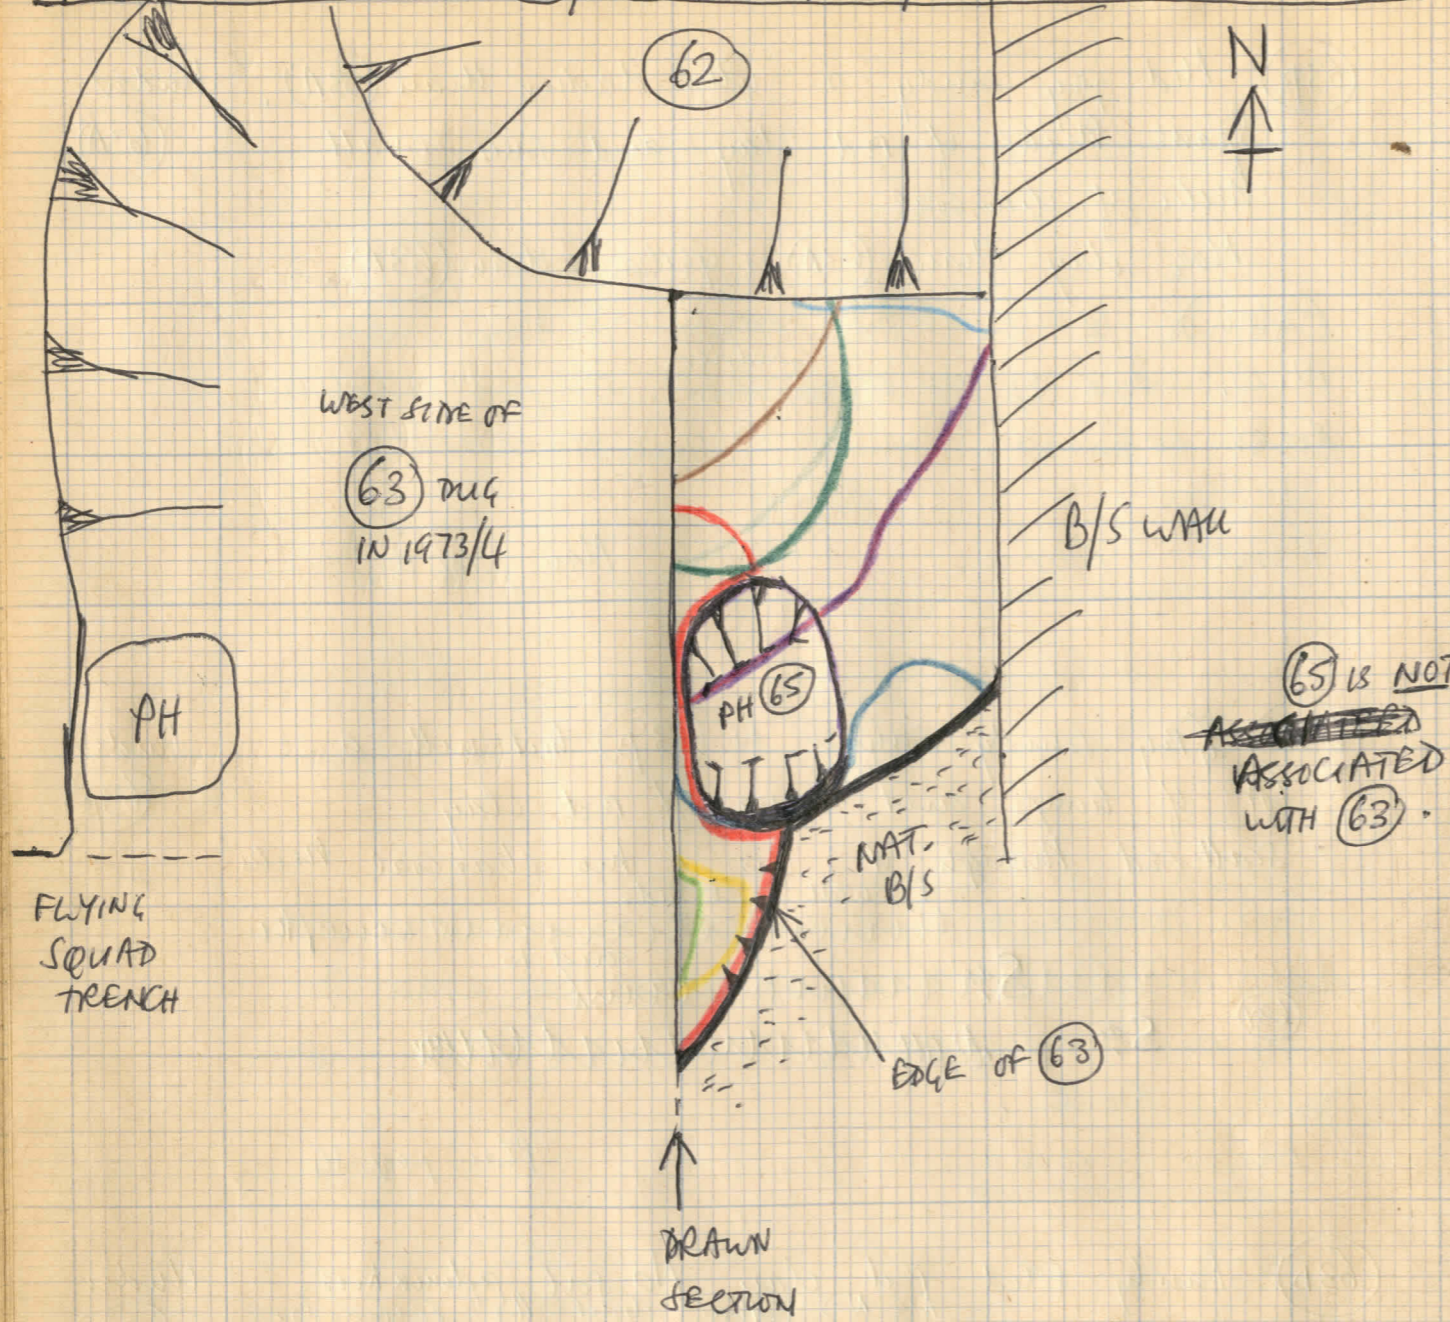 62
N
WEST SIDE OF
63 DUG
IN 1973/4
B/S WALL
PH
PH 65
65 IS NOT
ASSOCIATED
ASSOCIATED
WITH 63.
NAT.
B/S
FLYING
SQUAD
TRENCH
EDGE OF 63
DRAWN
SECTION